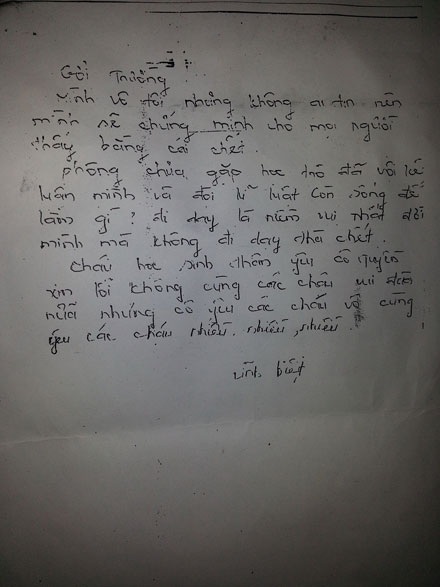 Gởi Trường
Mình vô tội nhưng không ai tin nên
mình sẽ chứng minh cho mọi người
thấy bằng cái chết.
phòng chưa gặp học trò đã vội kế
luận mình và đòi kĩ luật còn sống để
làm gì? đi dạy là niềm vui nhất đời
mình mà không đi dạy thà chết.
cháu học sinh thân yêu cô
xin lỗi không cùng các cháu vui đùa
nữa nhưng cô yêu các cháu vô cùng
yêu các cháu nhiều. nhiều, nhiều.
vĩnh biệt